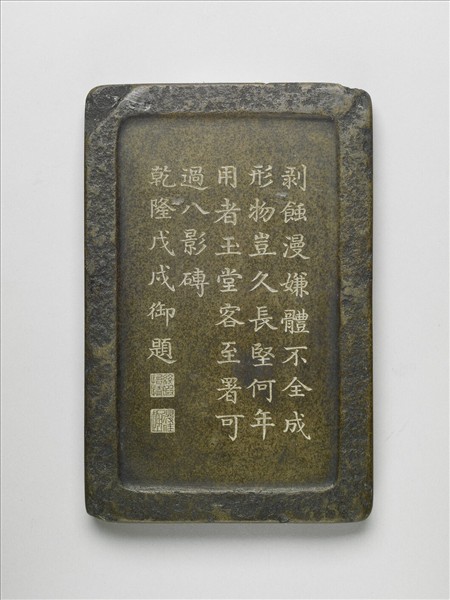 剥蝕漫嫌體不全成
形物豈久長堅何年
用者玉堂客至署可
過八影磚
乾隆戊戌御題